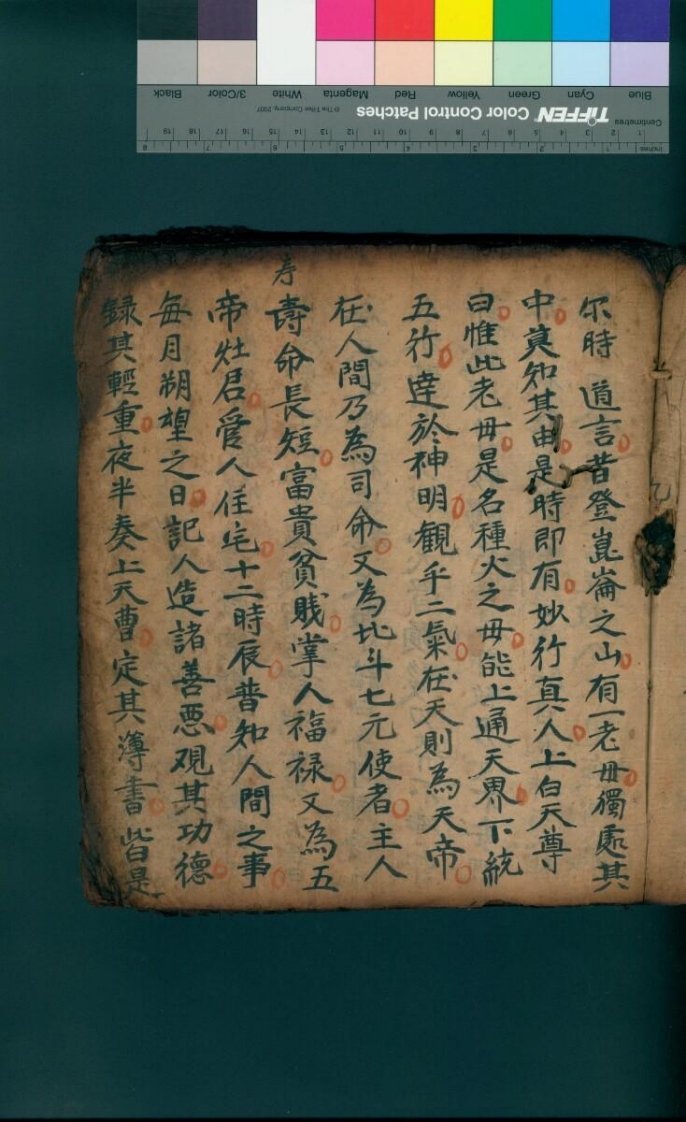 Blue
Cyan
Green
Yellow
Red
Magenta
White
3/Color
Black
Centimetres
TIFFEN® Color Control Patches
© The Tiffen Company, 2007
1 2 3 4 5 6 7 8 9 10 11 12 13 14 15 16 17 18 19
Inches
1 2 3 4 5 6 7 8
尔時 道言昔登崑崙之山有一老毋獨處其
中莫知其由是時即有妙行真人上白天尊
曰惟此老毋是名種火之毋能上通天界下統
五行達於神明観乎二氣在天則為天帝
在人間乃為司命又為北斗七元使者主人
寿
壽命長短富貴貧賎掌人福禄又為五
帝灶君管人住宅十二時辰普知人間之事
每月朔望之日記人造諸善悪观其功德
録其輕重夜半奏上天曹定其薄書皆是